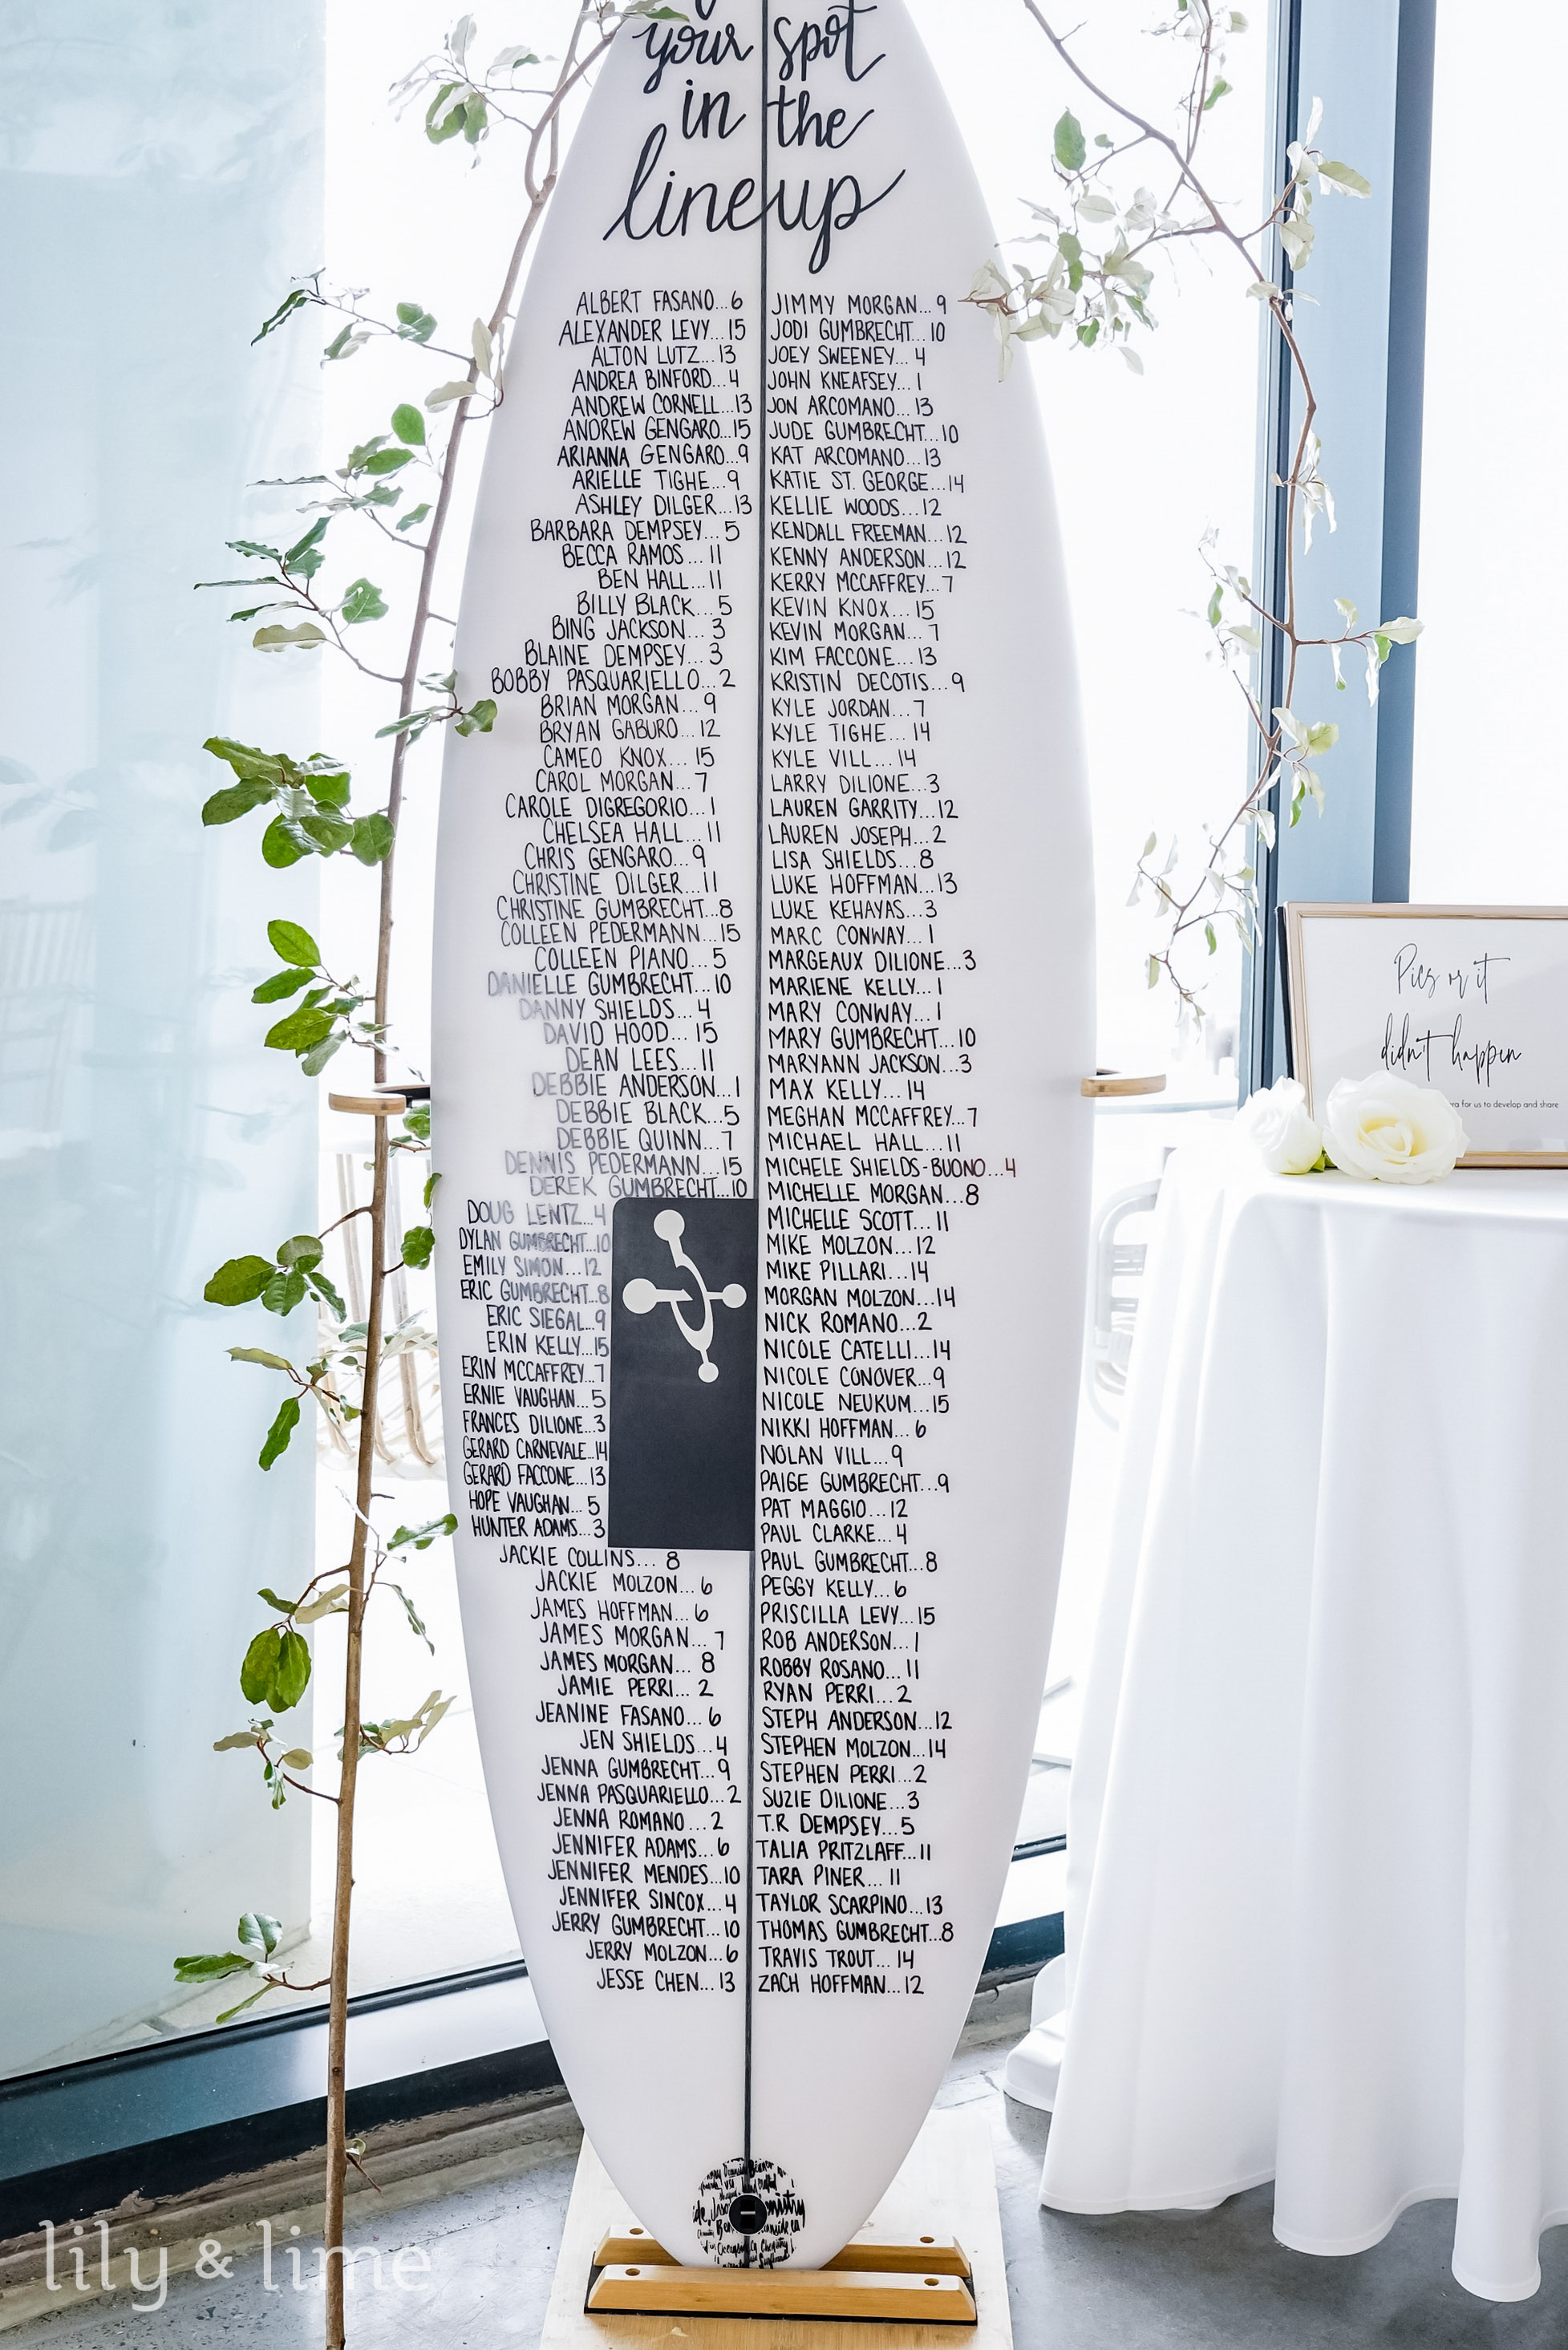 your spot
in the
lineup
ALBERT FASANO...6
ALEXANDER LEVY...15
ALTON LUTZ...13
ANDREA BINFORD...4
ANDREW CORNELL...13
ANDREW GENGARO...15
ARIANNA GENGARO...9
ARIELLE TIGHE...9
ASHLEY DILGER...13
BARBARA DEMPSEY...5
BECCA RAMOS...11
BEN HALL...11
BILLY BLACK...5
BING JACKSON...3
BLAINE DEMPSEY...3
BOBBY PASQUARIELLO...2
BRIAN MORGAN...9
BRYAN GABURO...12
CAMEO KNOX...15
CAROL MORGAN...7
CAROLE DIGREGORIO...1
CHELSEA HALL...11
CHRIS GENGARO...9
CHRISTINE DILGER...11
CHRISTINE GUMBRECHT...8
COLLEEN PEDERMANN...15
COLLEEN PIANO...5
DANIELLE GUMBRECHT...10
DANNY SHIELDS...4
DAVID HOOD...15
DEAN LEES...11
DEBBIE ANDERSON...1
DEBBIE BLACK...5
DEBBIE QUINN...7
DENNIS PEDERMANN...15
DEREK GUMBRECHT...10
DOUG LENTZ...4
DYLAN GUMBRECHT...10
EMILY SIMON...12
ERIC GUMBRECHT...8
ERIC SIEGAL...9
ERIN KELLY...15
ERIN MCCAFFREY...7
ERNIE VAUGHAN...5
FRANCES DILIONE...3
GERARD CARNEVALE...14
GERARD FACCONE...13
HOPE VAUGHAN...5
HUNTER ADAMS...3
JACKIE COLLINS...8
JACKIE MOLZON...6
JAMES HOFFMAN...6
JAMES MORGAN...7
JAMES MORGAN...8
JAMIE PERRI...2
JEANINE FASANO...6
JEN SHIELDS...4
JENNA GUMBRECHT...9
JENNA PASQUARIELLO...2
JENNA ROMANO...2
JENNIFER ADAMS...6
JENNIFER MENDES...10
JENNIFER SINCOX...4
JERRY GUMBRECHT...10
JERRY MOLZON...6
JESSE CHEN...13
JIMMY MORGAN...9
JODI GUMBRECHT...10
JOEY SWEENEY...4
JOHN KNEAFSEY...1
JON ARCOMANO...13
JUDE GUMBRECHT...10
KAT ARCOMANO...13
KATIE ST. GEORGE...14
KELLIE WOODS...12
KENDALL FREEMAN...12
KENNY ANDERSON...12
KERRY MCCAFFREY...7
KEVIN KNOX...15
KEVIN MORGAN...7
KIM FACCONE...13
KRISTIN DECOTIS...9
KYLE JORDAN...7
KYLE TIGHE...14
KYLE VILL...14
LARRY DILIONE...3
LAUREN GARRITY...12
LAUREN JOSEPH...2
LISA SHIELDS...8
LUKE HOFFMAN...13
LUKE KEHAYAS...3
MARC CONWAY...1
MARGEAUX DILIONE...3
MARIENE KELLY...1
MARY CONWAY...1
MARY GUMBRECHT...10
MARYANN JACKSON...3
MAX KELLY...14
MEGHAN MCCAFFREY...7
MICHAEL HALL...11
MICHELE SHIELDS-BUONO...4
MICHELLE MORGAN...8
MICHELLE SCOTT...11
MIKE MOLZON...12
MIKE PILLARI...14
MORGAN MOLZON...14
NICK ROMANO...2
NICOLE CATELLI...14
NICOLE CONOVER...9
NICOLE NEUKUM...15
NIKKI HOFFMAN...6
NOLAN VILL...9
PAIGE GUMBRECHT...9
PAT MAGGIO...12
PAUL CLARKE...4
PAUL GUMBRECHT...8
PEGGY KELLY...6
PRISCILLA LEVY...15
ROB ANDERSON...1
ROBBY ROSANO...11
RYAN PERRI...2
STEPH ANDERSON...12
STEPHEN MOLZON...14
STEPHEN PERRI...2
SUZIE DILIONE...3
T.R DEMPSEY...5
TALIA PRITZLAFF...11
TARA PINER...11
TAYLOR SCARPINO...13
THOMAS GUMBRECHT...8
TRAVIS TROUT...14
ZACH HOFFMAN...12
Pics or it
didn't happen
for us to develop and share
lily & lime